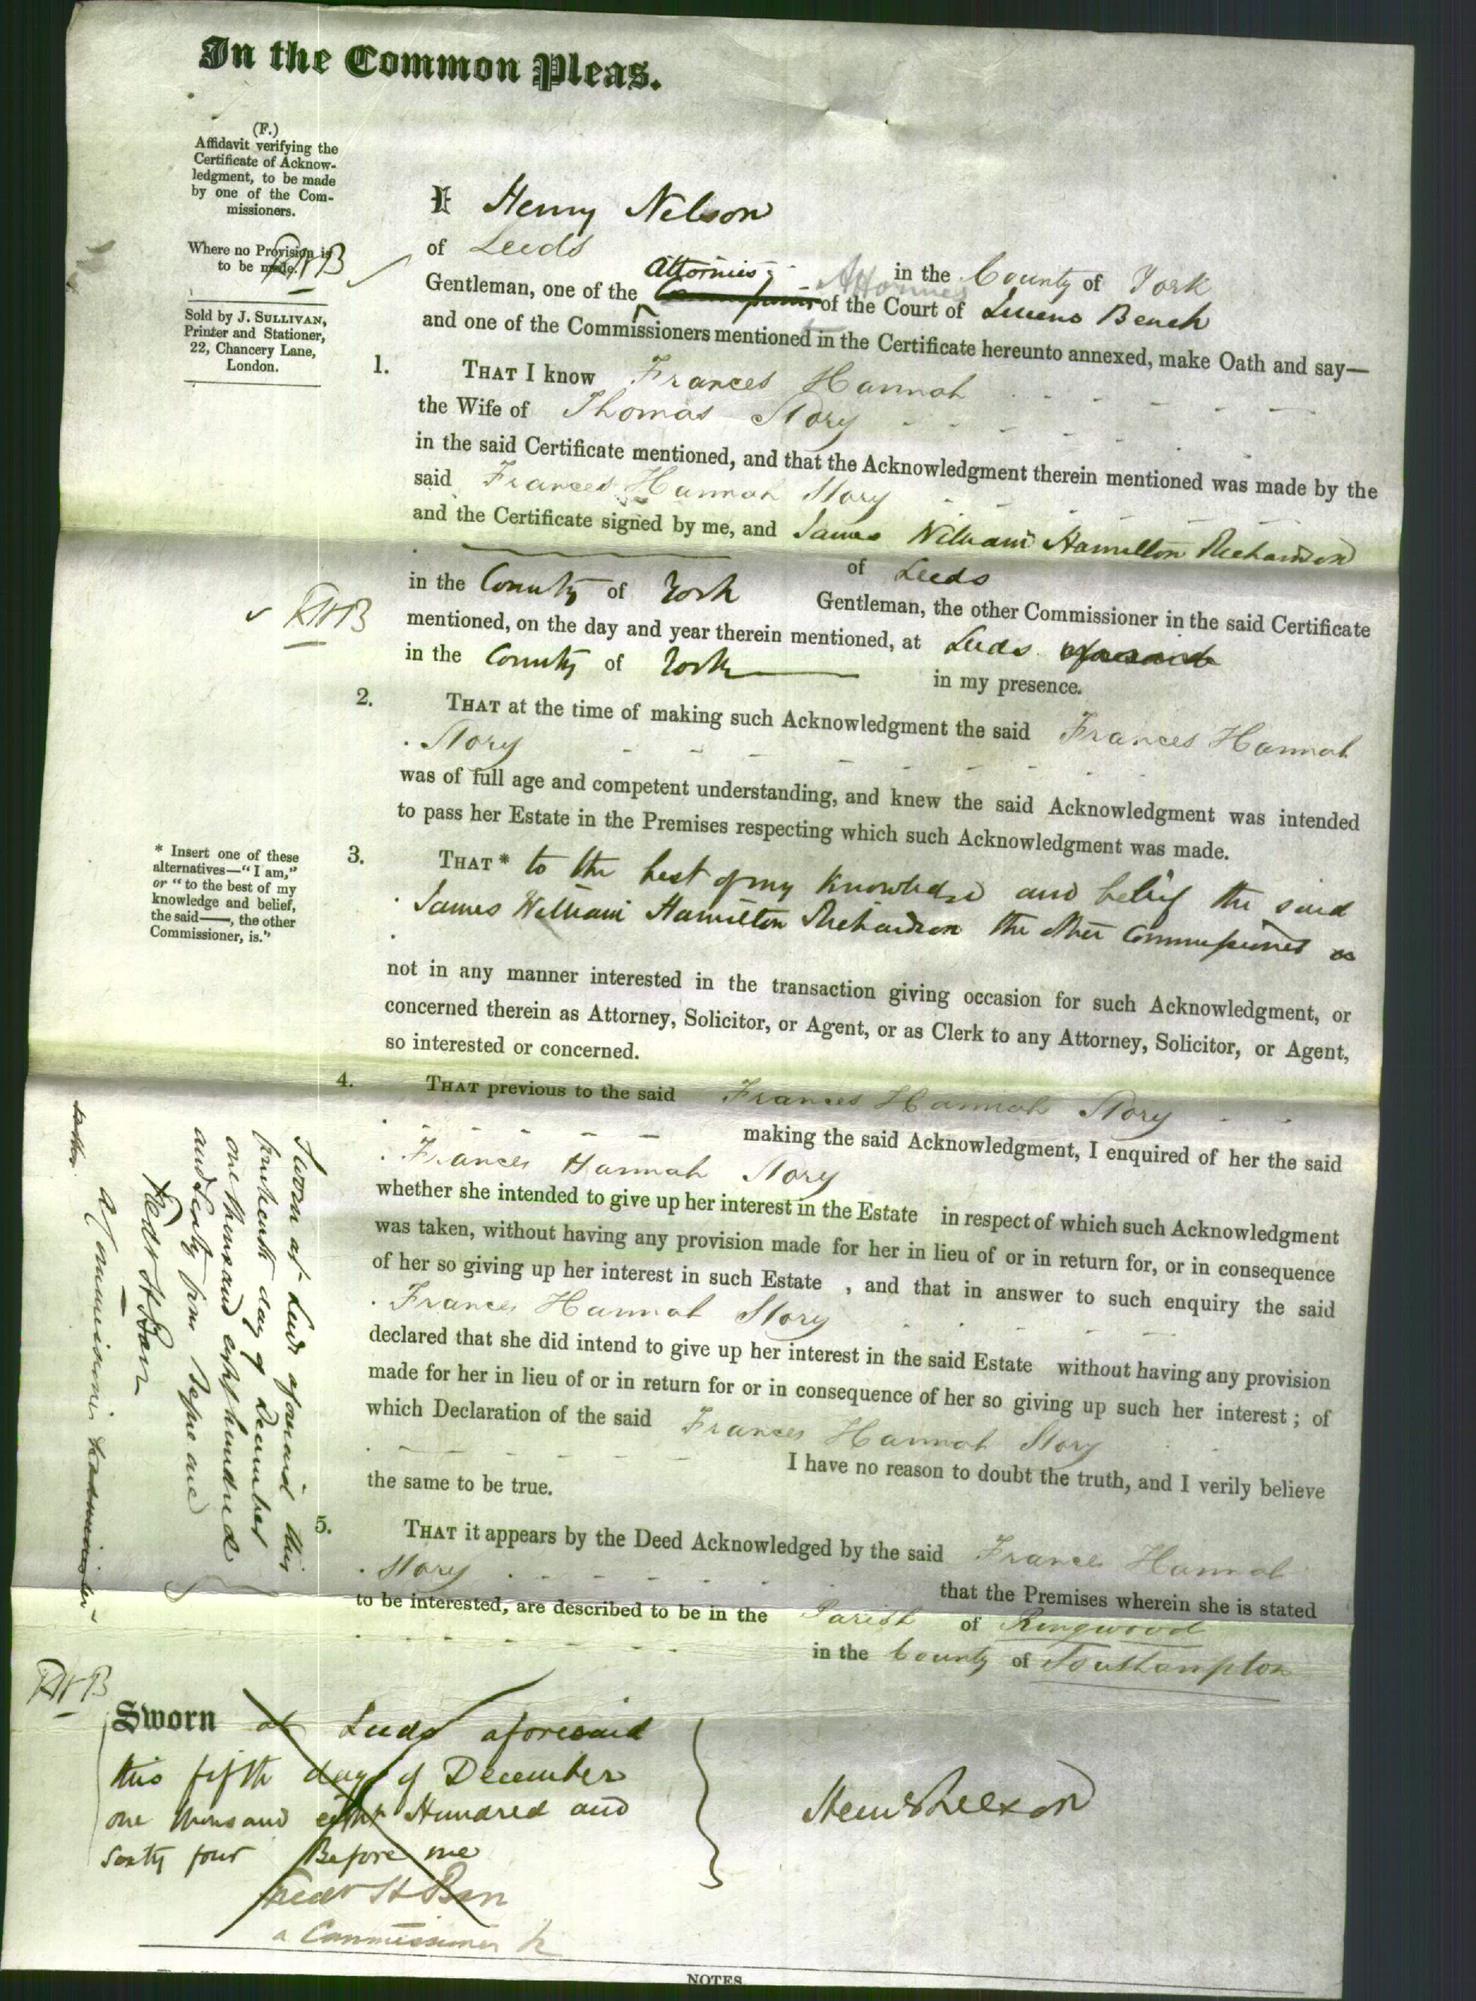 In the Common Pleas.
(F.)
Affidavit verifying the
Certificate of Acknow-
ledgment, to be made
by one of the Com-
missioners.
Where no Provision is
to be made.
Sold by J. SULLIVAN,
Printer and Stationer,
22, Chancery Lane,
London.
I Henry Nelson
of Leeds in the County of York
Gentleman, one of the Attornies of the Court of Queens Bench
and one of the Commissioners mentioned in the Certificate hereunto annexed, make Oath and say—
1. THAT I know Frances Hannah
the Wife of Thomas Story
in the said Certificate mentioned, and that the Acknowledgment therein mentioned was made by the
said Frances Hannah Story
and the Certificate signed by me, and James William Hamilton Richardson
of Leeds
in the County of York Gentleman, the other Commissioner in the said Certificate
mentioned, on the day and year therein mentioned, at Leeds aforesaid
in the County of York in my presence.
2. THAT at the time of making such Acknowledgment the said Frances Hannah
Story
was of full age and competent understanding, and knew the said Acknowledgment was intended
to pass her Estate in the Premises respecting which such Acknowledgment was made.
* Insert one of these
alternatives—"I am,"
or "to the best of my
knowledge and belief,
the said——, the other
Commissioner, is."
3. THAT* to the best of my knowledge and belief the said
James William Hamilton Richardson the other Commissioner is
not in any manner interested in the transaction giving occasion for such Acknowledgment, or
concerned therein as Attorney, Solicitor, or Agent, or as Clerk to any Attorney, Solicitor, or Agent,
so interested or concerned.
4. THAT previous to the said Frances Hannah Story
making the said Acknowledgment, I enquired of her the said
Frances Hannah Story
whether she intended to give up her interest in the Estate in respect of which such Acknowledgment
was taken, without having any provision made for her in lieu of or in return for, or in consequence
of her so giving up her interest in such Estate , and that in answer to such enquiry the said
Frances Hannah Story
declared that she did intend to give up her interest in the said Estate without having any provision
made for her in lieu of or in return for or in consequence of her so giving up such her interest; of
which Declaration of the said Frances Hannah Story
I have no reason to doubt the truth, and I verily believe
the same to be true.
5. THAT it appears by the Deed Acknowledged by the said Frances Hannah
Story that the Premises wherein she is stated
to be interested, are described to be in the Parish of Ringwood
in the County of Southampton
Sworn at Leeds aforesaid this
fourteenth day of December
one thousand eight hundred
and sixty four Before me
a Commissioner
Sworn at Leeds aforesaid
this fifth day of December
one thousand eight Hundred and
sixty four Before me
a Commissioner &c
Henry Nelson
NOTES